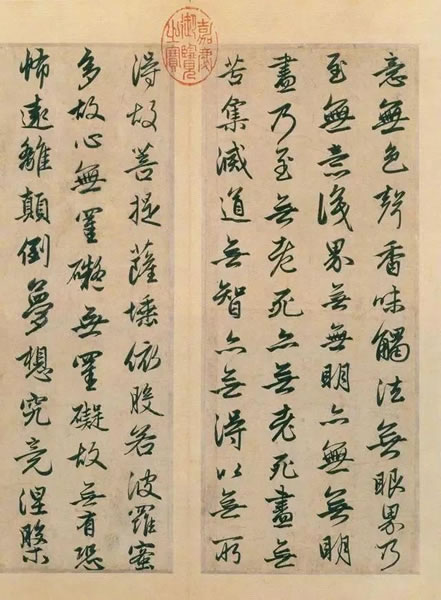 嘉慶御覽之寶
意無色聲香味觸法無眼界乃
至無意識界無無明亦無無明
盡乃至無老死亦無老死盡無
苦集滅道無智亦無得以無所
得故菩提薩埵依般若波羅蜜
多故心無罣礙無罣礙故無有恐
怖遠離顛倒夢想究竟涅槃